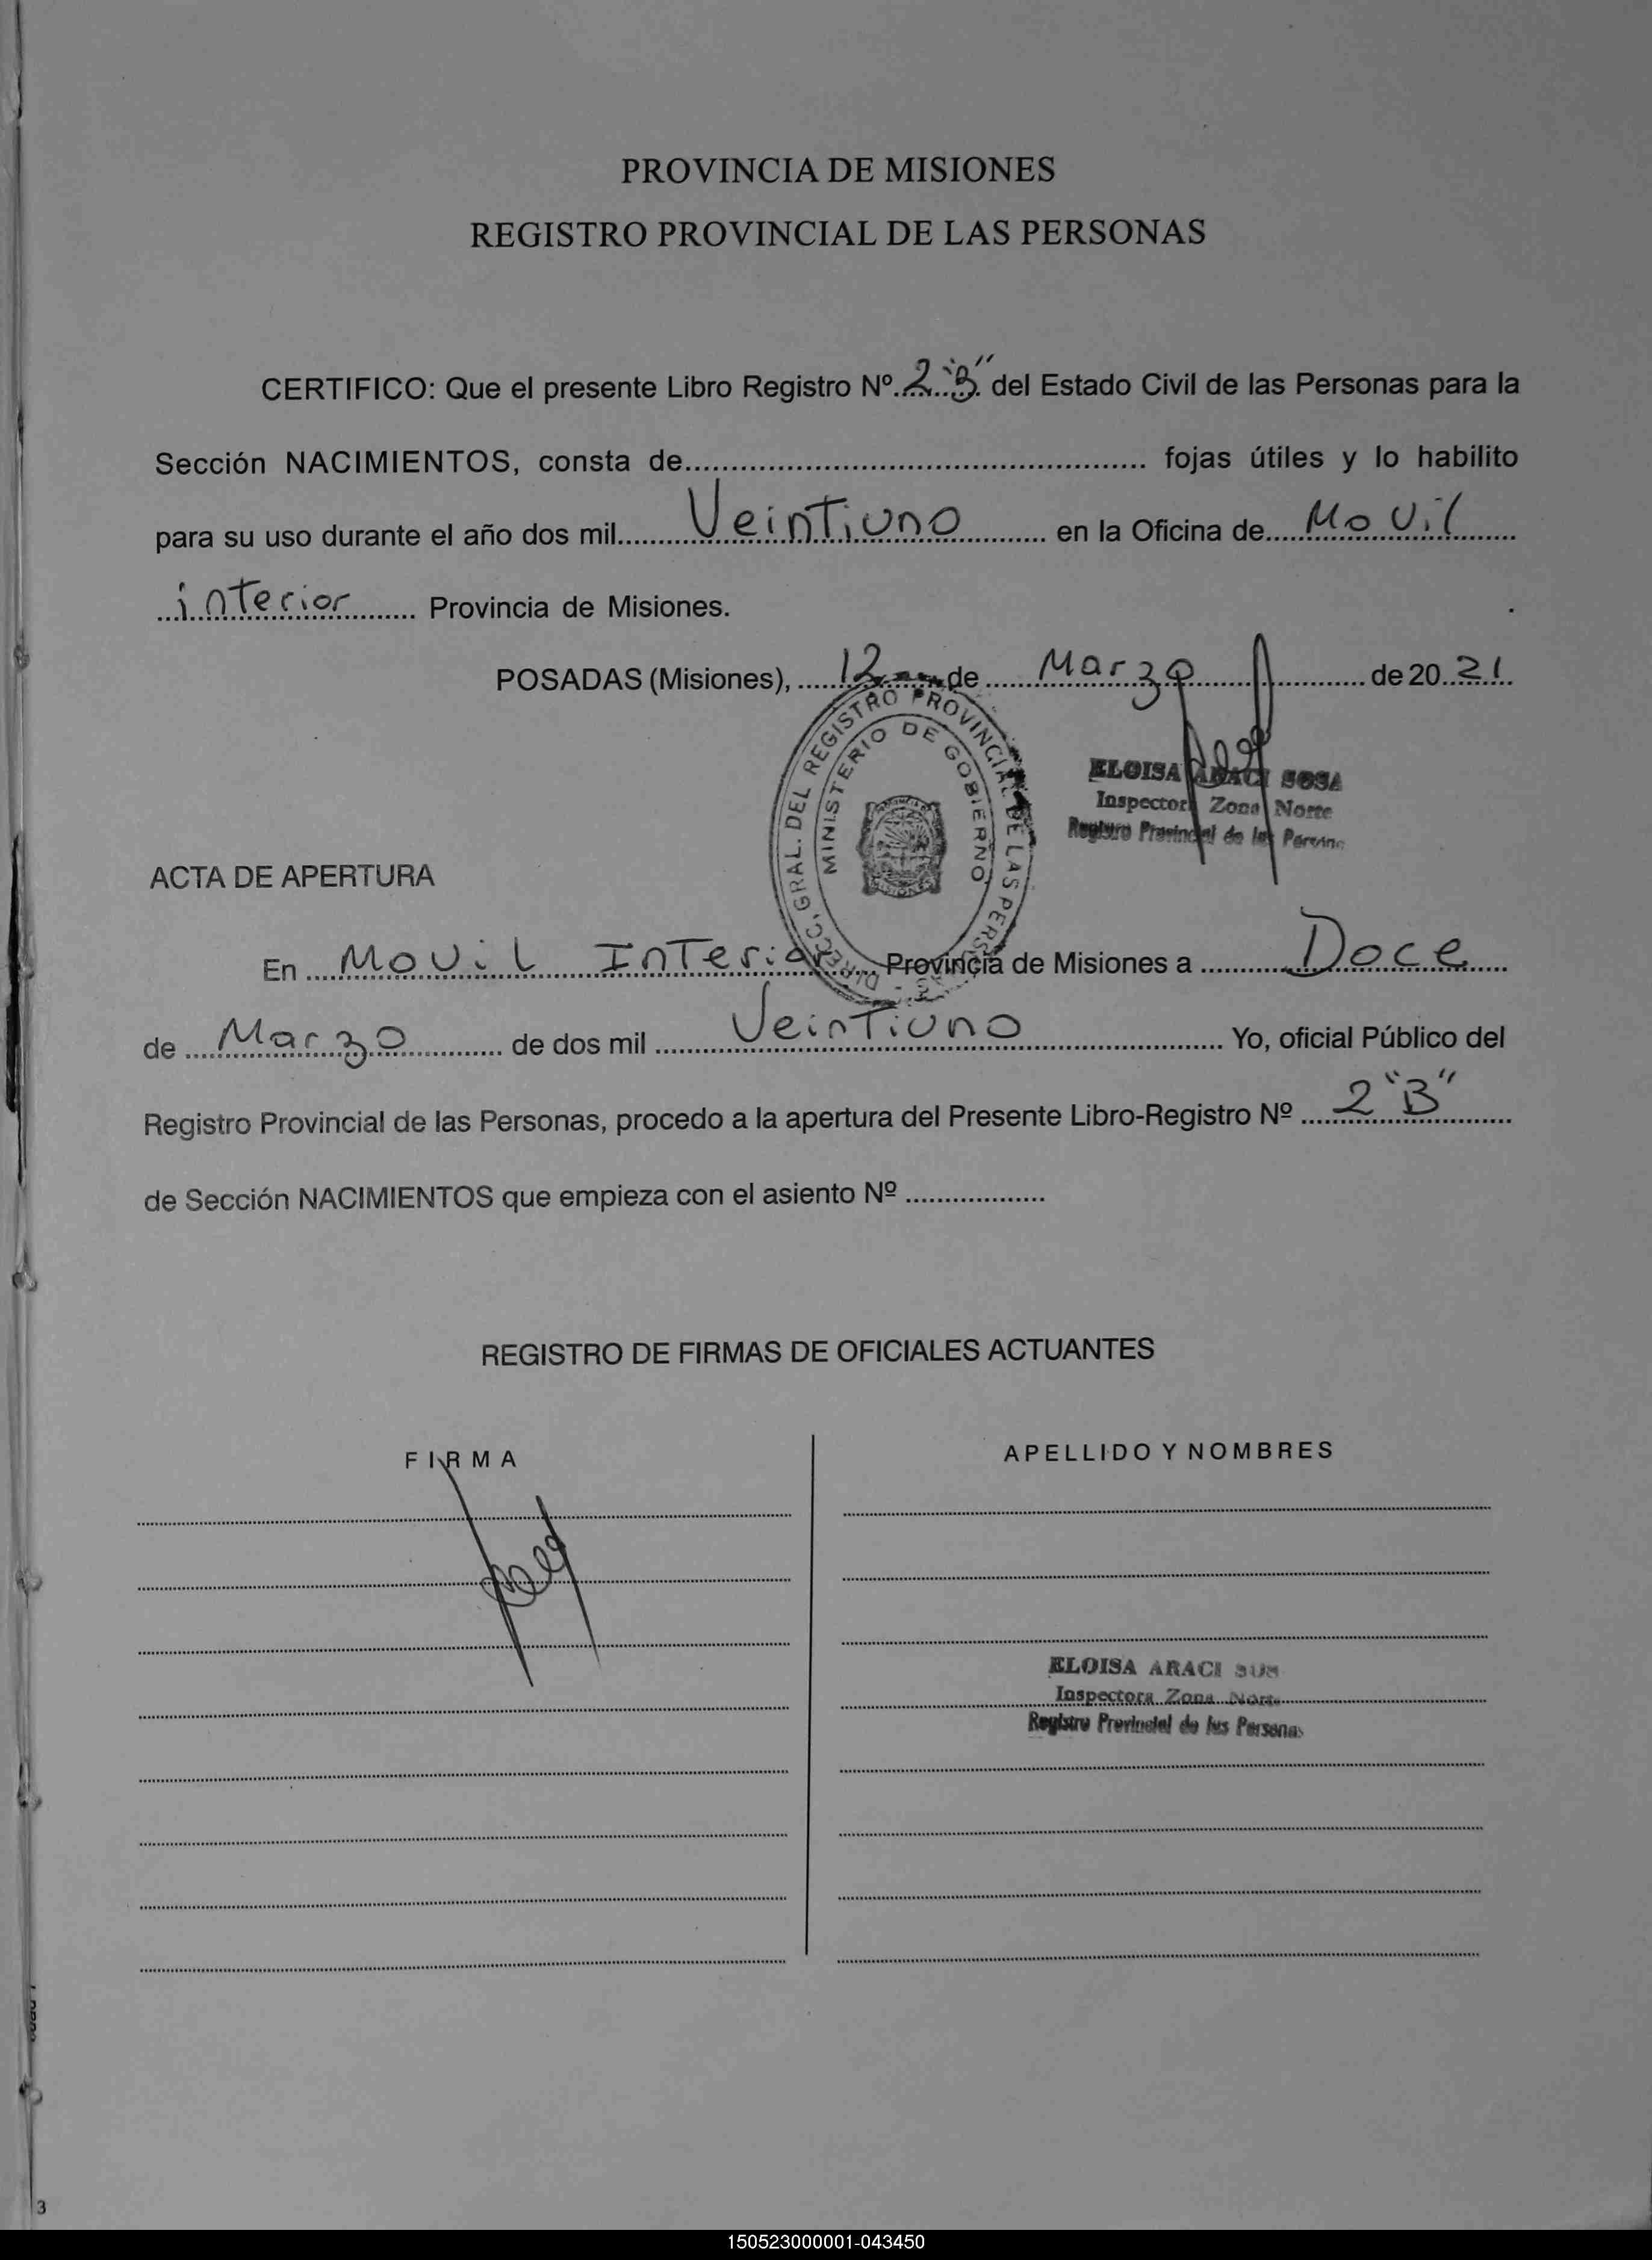 PROVINCIA DE MISIONES
REGISTRO PROVINCIAL DE LAS PERSONAS
CERTIFICO: Que el presente Libro Registro Nº. 2 "B" del Estado Civil de las Personas para la
Sección NACIMIENTOS, consta de.................................................... fojas útiles y lo habilito
para su uso durante el año dos mil........ Veintiuno .......... en la Oficina de..... Movil
interior ....... Provincia de Misiones.
POSADAS (Misiones), ..... 12 de ..... Marzo ................ de 20 21
DIRECC. GRAL. DEL REGISTRO PROVINCIAL DE LAS PERS
MINISTERIO DE GOBIERNO
ELOISA ARACI SOSA
Inspectora Zona Norte
Registro Provincial de las Persona
ACTA DE APERTURA
En .... Movil Interior .... Provincia de Misiones a .......... Doce
de .... Marzo .......... de dos mil ........ Veintiuno .................... Yo, oficial Público del
Registro Provincial de las Personas, procedo a la apertura del Presente Libro-Registro Nº .... 2 "B" ........
de Sección NACIMIENTOS que empieza con el asiento Nº ..................
REGISTRO DE FIRMAS DE OFICIALES ACTUANTES
FIRMA
APELLIDO Y NOMBRES
ELOISA ARACI
Inspectora Zona Norte
Registro Provincial de las Personas
3
150523000001-043450